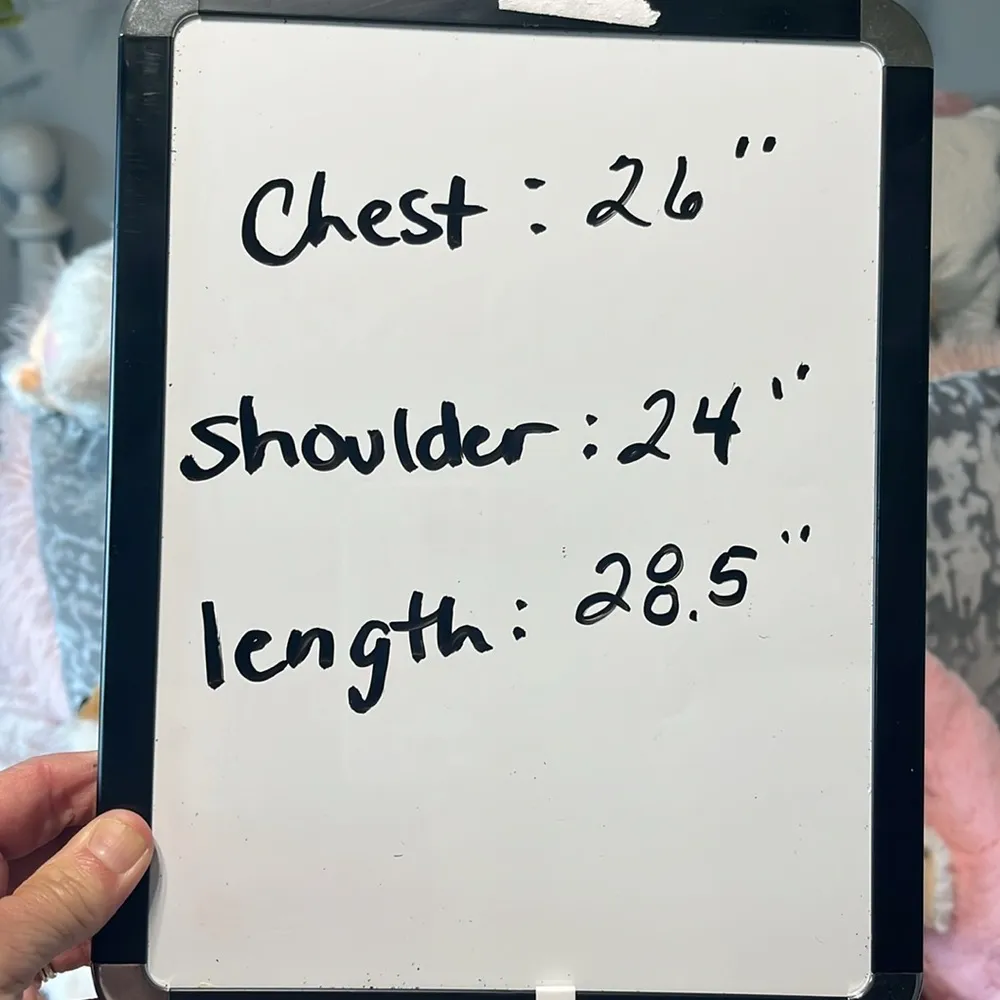 Chest : 26"
Shoulder : 24"
length : 28.5"